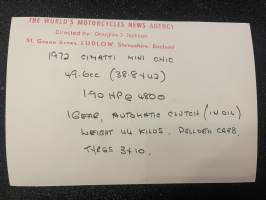 THE WORLD'S MOTORCYCLES NEWS AGENCY
Directed by: Douglas J. Jackson
St. Green Acres, LUDLOW, Shropshire, England
1972 CIMATTI MINI CHIC
49.6cc (38.8x42)
1.90 HP @ 4800
1 GEAR, AUTOMATIC CLUTCH (IN OIL)
WEIGHT 44 KILOS. DELLORTO CARB.
TYRES 3x10.